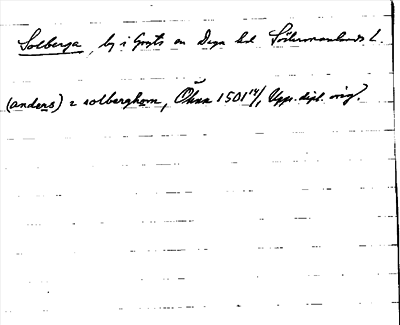 Solberga, by i Gryts sn Daga hd Södermanlands L.
(anders) i solberghom, Öhna 1501 14/1, Upps. dipl. orig.